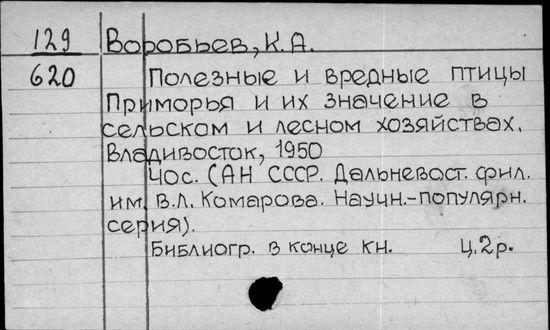 129 Воробьев, К.А.
620 Полезные и вредные птицы
Приморья и их значение в
сельском и лесном хозяйствах.
Владивосток, 1950
40с. (АН СССР. Дальневост. фил.
им. В.Л. Комарова. Научн.-популярн.
серия).
Библиогр. в конце кн. Ц.2р.